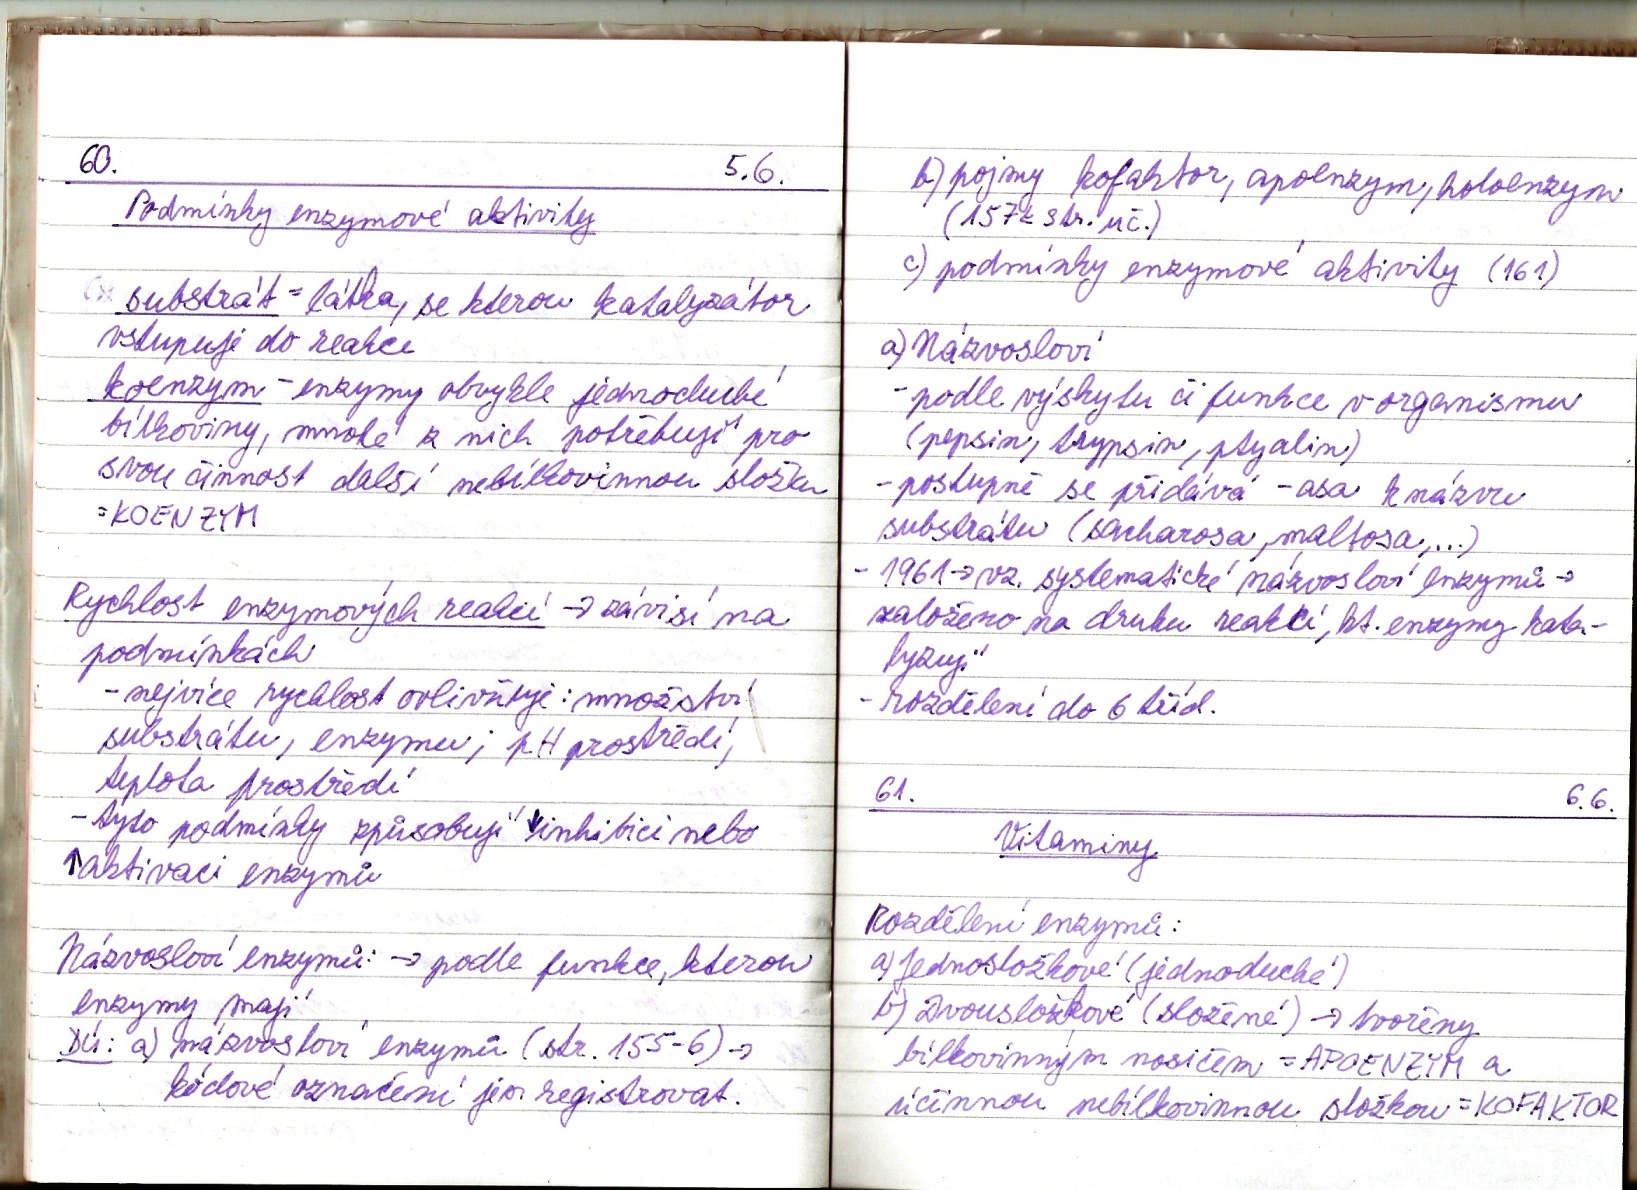 60. 5.6.
Podmínky enzymové aktivity
substrát = látka, se kterou katalyzátor
vstupuje do reakce
koenzym - enzymy obvykle jednoduché
bílkoviny, mnohé z nich potřebují pro
svou činnost další nebílkovinnou složku
= KOENZYM
Rychlost enzymových reakcí → závisí na
podmínkách
- nejvíce rychlost ovlivňuje: množství
substrátu, enzymu; pH prostředí,
teplota prostředí
- tyto podmínky způsobují ↓inhibici nebo
↑aktivaci enzymů
Názvosloví enzymů: → podle funkce, kterou
enzymy mají
DÚ: a) názvosloví enzymů (str. 155-6) →
kódové označení jen registrovat.
b) pojmy kofaktor, apoenzym, holoenzym
(157 str. uč.)
c) podmínky enzymové aktivity (161)
a) Názvosloví
- podle výskytu či funkce v organismu
(pepsin, trypsin, ptyalin)
- postupně se přidává -asa k názvu
substrátu (sacharosa, maltosa,...)
- 1961 → vz. systematické názvosloví enzymů →
založeno na druhu reakcí, kt. enzymy kata-
lyzují
- rozdělení do 6 tříd.
61. 6.6.
Vitaminy
Rozdělení enzymů:
a) Jednosložkové (jednoduché)
b) Dvousložkové (složené) → tvořeny
bílkovinným nosičem = APOENZYM a
účinnou nebílkovinnou složkou = KOFAKTOR